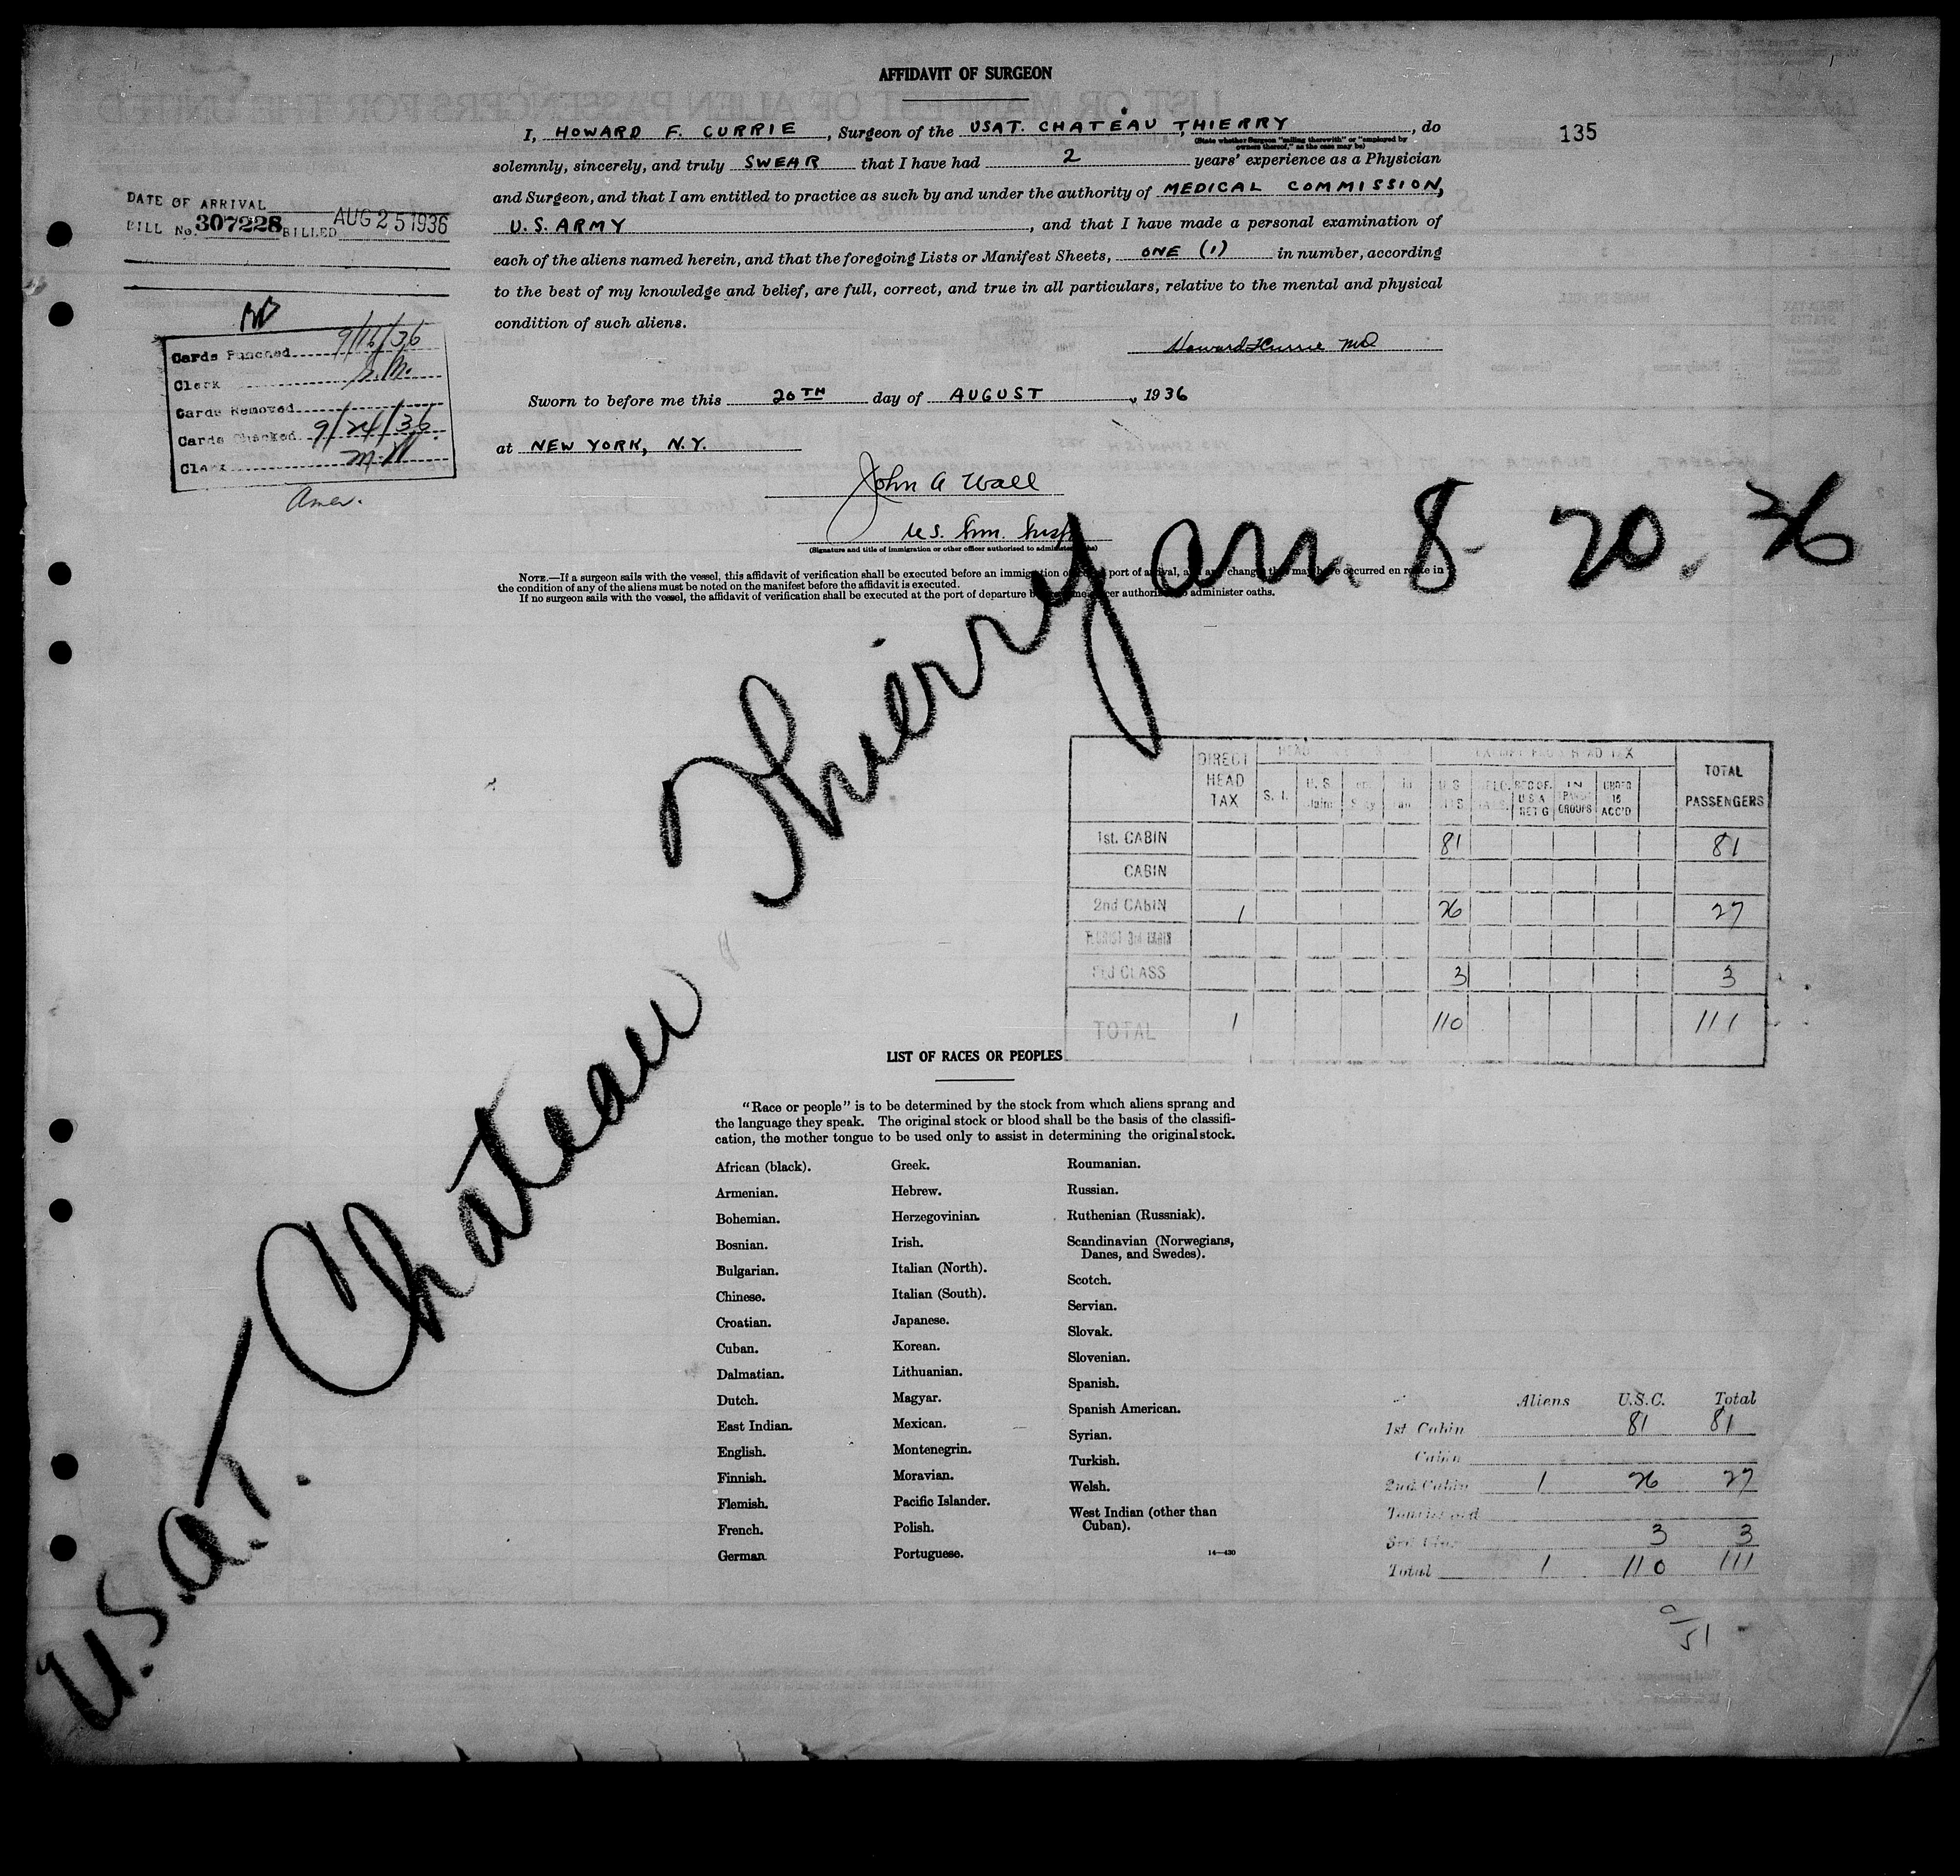 AFFIDAVIT OF SURGEON
I, HOWARD F. CURRIE, Surgeon of the USAT. CHATEAU THIERRY, do
(State whether Surgeon "sailing therewith" or "employed by
owners thereof," as the case may be)
135
solemnly, sincerely, and truly SWEAR that I have had 2 years' experience as a Physician
and Surgeon, and that I am entitled to practice as such by and under the authority of MEDICAL COMMISSION,
U.S. ARMY, and that I have made a personal examination of
each of the aliens named herein, and that the foregoing Lists or Manifest Sheets, ONE (1) in number, according
to the best of my knowledge and belief, are full, correct, and true in all particulars, relative to the mental and physical
condition of such aliens.
Howard F Currie MD
Sworn to before me this 20TH day of AUGUST, 1936
at NEW YORK, N.Y.
John A Wall
U.S. Imm. Insp
(Signature and title of immigration or other officer authorized to administer oaths)
NOTE.—If a surgeon sails with the vessel, this affidavit of verification shall be executed before an immigration port of arrival, and any change that may have occurred en route in
the condition of any of the aliens must be noted on the manifest before the affidavit is executed.
If no surgeon sails with the vessel, the affidavit of verification shall be executed at the port of departure authorized to administer oaths.
DATE OF ARRIVAL
BILL No. 307228 BILLED AUG 25 1936
Cards Punched 9/16/36
Clerk
Cards Removed
Cards Checked 9/24/36
Clerk
U.S.A.T. Chateau Thierry arr. 8-20.36
DIRECT HEAD TAX
S. I.
EXEMPT FROM HEAD TAX
IN TRANSIT GROUPS
UNDER 16 ACC'D
TOTAL PASSENGERS
1st. CABIN 81 81
CABIN
2nd CABIN 1 26 27
TOURIST 3rd CABIN
3rd CLASS 3 3
TOTAL 1 110 111
LIST OF RACES OR PEOPLES
"Race or people" is to be determined by the stock from which aliens sprang and
the language they speak. The original stock or blood shall be the basis of the classifi-
cation, the mother tongue to be used only to assist in determining the original stock.
African (black).
Armenian.
Bohemian.
Bosnian.
Bulgarian.
Chinese.
Croatian.
Cuban.
Dalmatian.
Dutch.
East Indian.
English.
Finnish.
Flemish.
French.
German
Greek.
Hebrew.
Herzegovinian.
Irish.
Italian (North).
Italian (South).
Japanese.
Korean.
Lithuanian.
Magyar.
Mexican.
Montenegrin.
Moravian.
Pacific Islander.
Polish.
Portuguese.
Roumanian.
Russian.
Ruthenian (Russniak).
Scandinavian (Norwegians,
Danes, and Swedes).
Scotch.
Servian.
Slovak.
Slovenian.
Spanish.
Spanish American.
Syrian.
Turkish.
Welsh.
West Indian (other than
Cuban).
14—430
Aliens U.S.C. Total
1st Cabin 81 81
Cabin
2nd Cabin 1 26 27
3 3
Total 1 110 111